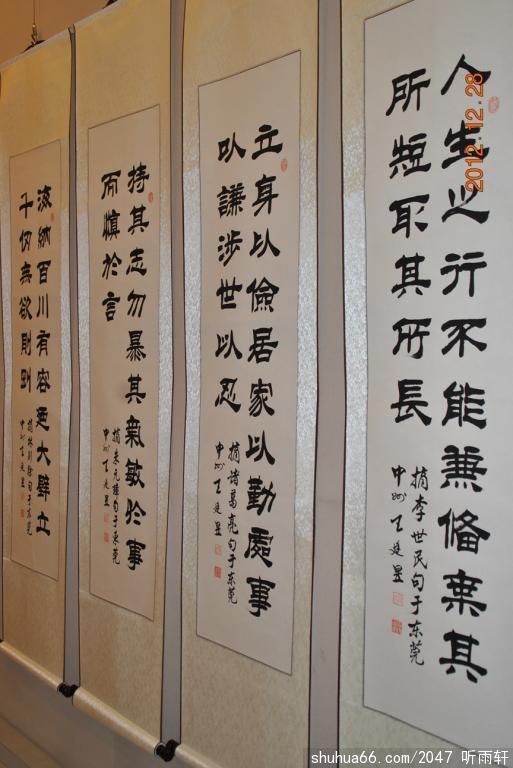 人生之行不能兼備棄其
所短取其所長
摘李世民句于东莞
中州王延昱
立身以儉居家以勤處事
以謙涉世以忍
摘诸葛亮句于东莞
中州王延昱
持其志勿暴其氣敏於事
而慎於言
摘朱元句于东莞
中州王延昱
海納百川有容迺大壁立
千仞無欲則剛
摘林则徐句于东莞
中州王延昱
2012.12.28
shuhua66.com/2047 听雨轩